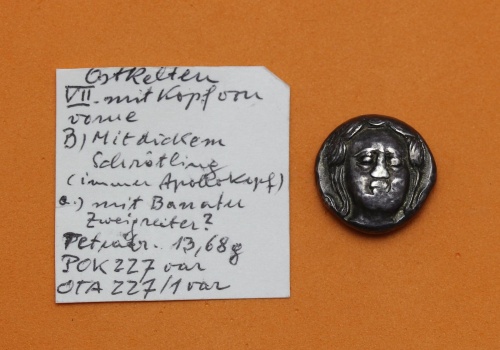 Ostkelten
VII. mit Kopf von
vorne
B) Mit dickem
Schrötling
(immer Apollokopf)
a.) mit Banater
Zweigreiter?
Tetradr. 13,68g
POK 227 var
OTA 227/1 var